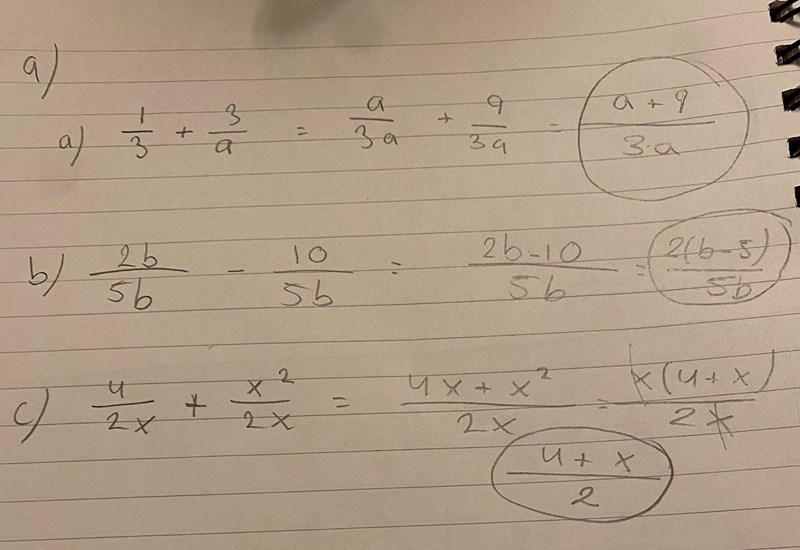 a)
a) 1/3 + 3/a = a/3a + 9/3a = a+9/3·a
b) 2b/5b - 10/5b = 2b-10/5b = 2(b-5)/5b
c) 4/2x + x²/2x = 4x+x²/2x = x(4+x)/2x
4+x/2